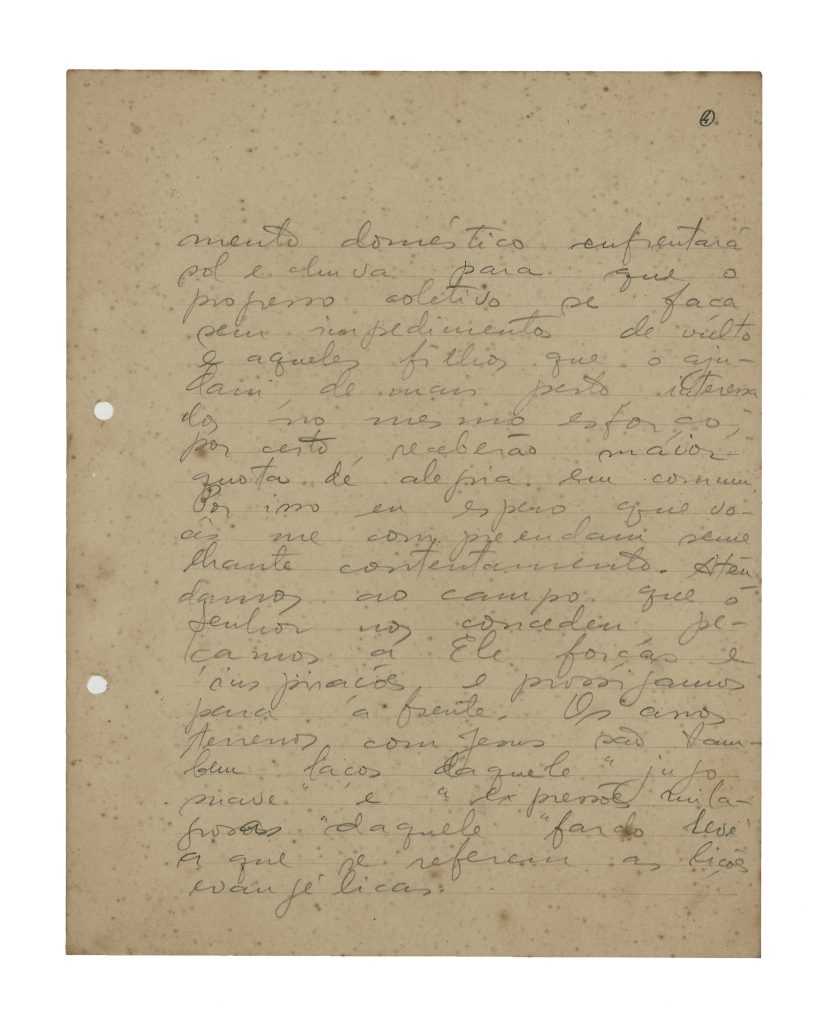 4
mento doméstico enfrentará
sol e chuva para que o
progresso coletivo se faca
sem impedimentos de vulto
e aqueles filhos que o aju-
dam de mais perto interessa
dos no mesmo esforço,
por certo, receberão maior
quota de alegria em comum.
Por isso eu espero que vo-
cês me compreendam seme
lhante contentamento. Aten
damos ao campo que o
Senhor nos concedeu pe-
çamos a Ele forças e
inspirações e prossigamos
para a frente. Os anos
terrenos com Jesus são tam-
bem laços daquele "jugo
suave" e "expressões mila-
grosas" daquele "fardo leve"
a que se referem as lições
evangélicas.